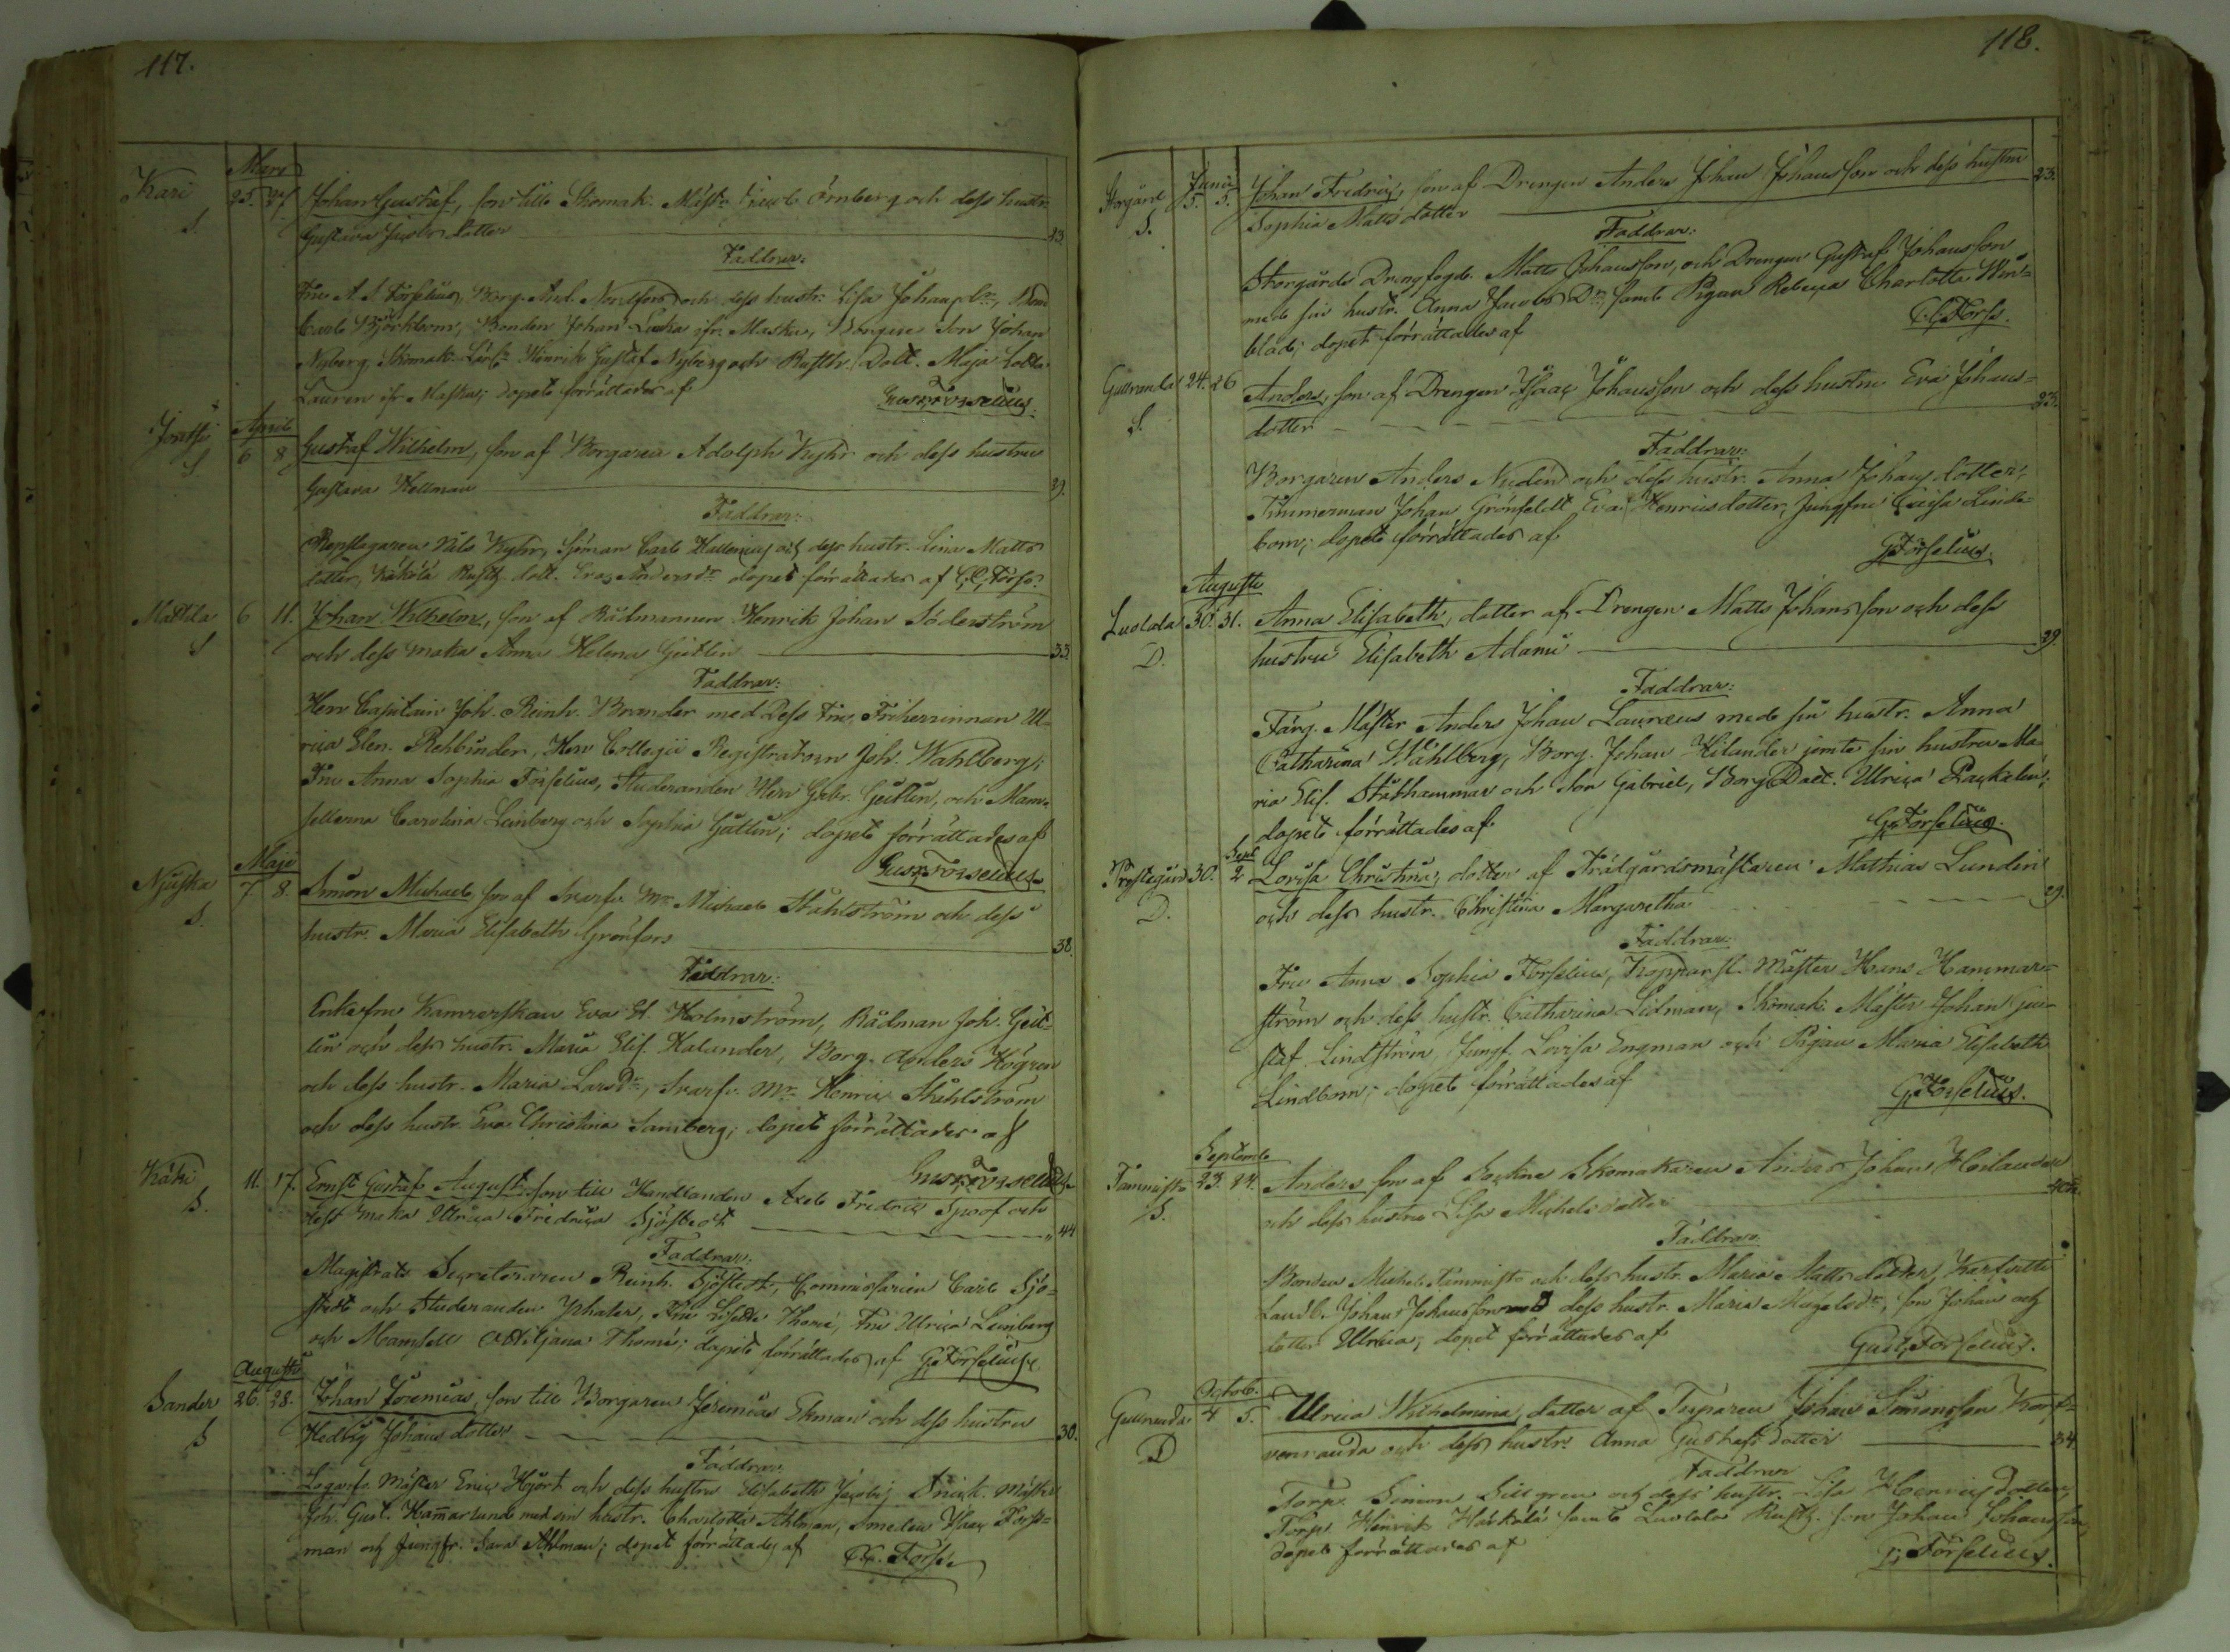 117.
Mars
Kari 25. 27. Johan Gustaf, son till Skomak. Mäst. Örnberg och dess hustr.
S. Gustava Jacobs dotter 23.
Faddrar:
Fru A. S. Forselius, Borg. And. Nordfors och dess hustr. Lisa Johansdr,
Carl Björkbom, Bonden Johan ifr. Masku, Borgare Son Johan
Nyberg, Skomak. Lärl. Henrik Gustaf Nyberg och Rusth. Dott. Maja
Lauren ifr. Masku; dopet förrättades af
Gust. Forselius.
April
6 8 Gustaf Wilhelm, son af Borgaren Adolph Kyhr och dess hustru
S Gustava Hellman 29.
Faddrar:
Repslagaren Nils Kyhr, Sjöman Carl och dess hustr. Lina Matts
dotter, Rusth. dott. Andersdr dopet förrättades af C. G. Forss.
Mattila 6 11. Johan Wilhelm, son af Rådmannen Henrik Johan Söderström
S och dess maka Anna Helena Geitlin 33
Faddrar:
Herr Capitain Joh. Reinh. Brander med Dess Fru, Friherrinnan Ul-
rica Elen. Rehbinder, Herr Collegii Registratorn Joh. Wahlberg,
Fru Anna Sophia Forselius, Studeranden Herr Gabr. Geitlin, och Mam-
sellerna Carolina Leinberg och Sophia Geitlin; dopet förrättades af
Gust. Forselius
Maji
Njuska 7 8. Simon Michael son af Svarfv. Mr Michael Ståhlström och dess
S. hustr. Maria Elisabeth Grönfors 38.
Faddrar:
Enkefru Kamrerskan Eva El. Holmström, Rådman Joh. Geit-
lin och dess hustr. Maria Elis. Kalander, Borg. Anders Högren
och dess hustr. Maria Larsdr, Svarfv. Mr Henric Ståhlström
och dess hustr. Eva Christina Samberg; dopet förrättades af
Gust. Forselius
11. 17. Ernst Gustaf August son till Handlanden Axel Fredric Spoof och
S. dess maka Ulrica Fredrica Sjöstedt 44
Faddrar:
Magistrats Secreteraren Reinh. Sjöstedt, Commissarien Carl Sjö-
stedt och Studeranden Fru Thomé, Fru Ulrica Leinberg
och Mamsell Thomé; dopet förrättades af G. Forselius.
Augusti
Sander 26. 28. Johan Jeremias, son till Borgaren Jeremias Ekman och dess hustru
S Hedvig Johans dotter 30.
Faddrar:
Logarfv. Mäster Eric Hjort och dess hustru Elisabeth Jacobi, Snick. Mäster
Joh. Gust. Hammarlund med sin hustr. Charlotta Ahlman, Smeden Isaac Forss-
man och Jungfr. Sara Ahlman; dopet förrättades af C. G. Forss.
118.
Junii
Storgård 5. 5. Johan Fredric, son af Drengen Anders Johan Johansson och dess hustru
S. Sophia Matts dotter 23.
Faddrar:
Storgårds Drengfogde Matts Johansson, och Drengen Gustaf Johansson
med sin hustr. Anna Jacobs Dr, samt Pigan Rebecca Charlotta Win-
blad; dopet förrättades af
C. G. Forss.
Gullranda 24. 26 Anders, son af Drengen Isaac Johansson och dess hustru Eva Johans-
S. dotter 23.
Faddrar:
Borgaren Anders Nudén och dess hustr. Anna Johans dotter,
Timmerman Johan Grönfeldt Eva Henricsdotter, Jungfru Caisa Lind-
bom; dopet förrättades af
G. Forselius.
Augusti
Luolala 30. 31. Anna Elisabeth, dotter af Drengen Matts Johansson och dess
D. hustru Elisabeth Adami 29.
Faddrar:
Färg. Mäster Anders Johan Lauraeus med sin hustr. Anna
Catharina Wahlberg, Borg. Johan Kilander jemte sin hustru Ma-
ria Elis. Stålhammar och Son Gabriel, Borg. Dott. Ulrica
dopet förrättades af
G. Forselius.
Sept
Prestegård 30. 2 Lovisa Christina, dotter af Trädgårdsmästaren Mathias Lundén
D. och dess hustr. Christina Margaretha 29.
Faddrar:
Fru Anna Sophia Forselius, Kopparsl. Mäster Hans Hammar-
ström och dess hustr. Catharina Lidman, Skomak. Mäster Johan Gu-
staf Lindström, Jungf. Lovisa Engman och Pigan Maria Elisabeth
Lindbom; dopet förrättades af
G. Forselius.
Septemb.
Tammisto 23. 24. Anders son af Sockne Skomakaren Anders Johan
S. och dess hustru Lisa Michels dotter
Faddrar:
Bonden Michel Tammisto och dess hustr. Maria Matts dotter,
Landb. Johan Johansson med dess hustr. Maria dr, son Johan och
dotter Ulrica; dopet förrättades af
Gust. Forselius.
Octob.
Gullranda 4 5. Ulrica Wilhelmina, dotter af Torparen Johan Simonsson
D och dess hustr. Anna Gustafs dotter 34
Faddrar
Torp. Simon Sillgren och dess hustr. Lisa Henrics dotter,
Torp. Henrik Härkälä samt Luolala Rusth. son Johan Johansson
dopet förrättades af
G. Forselius.